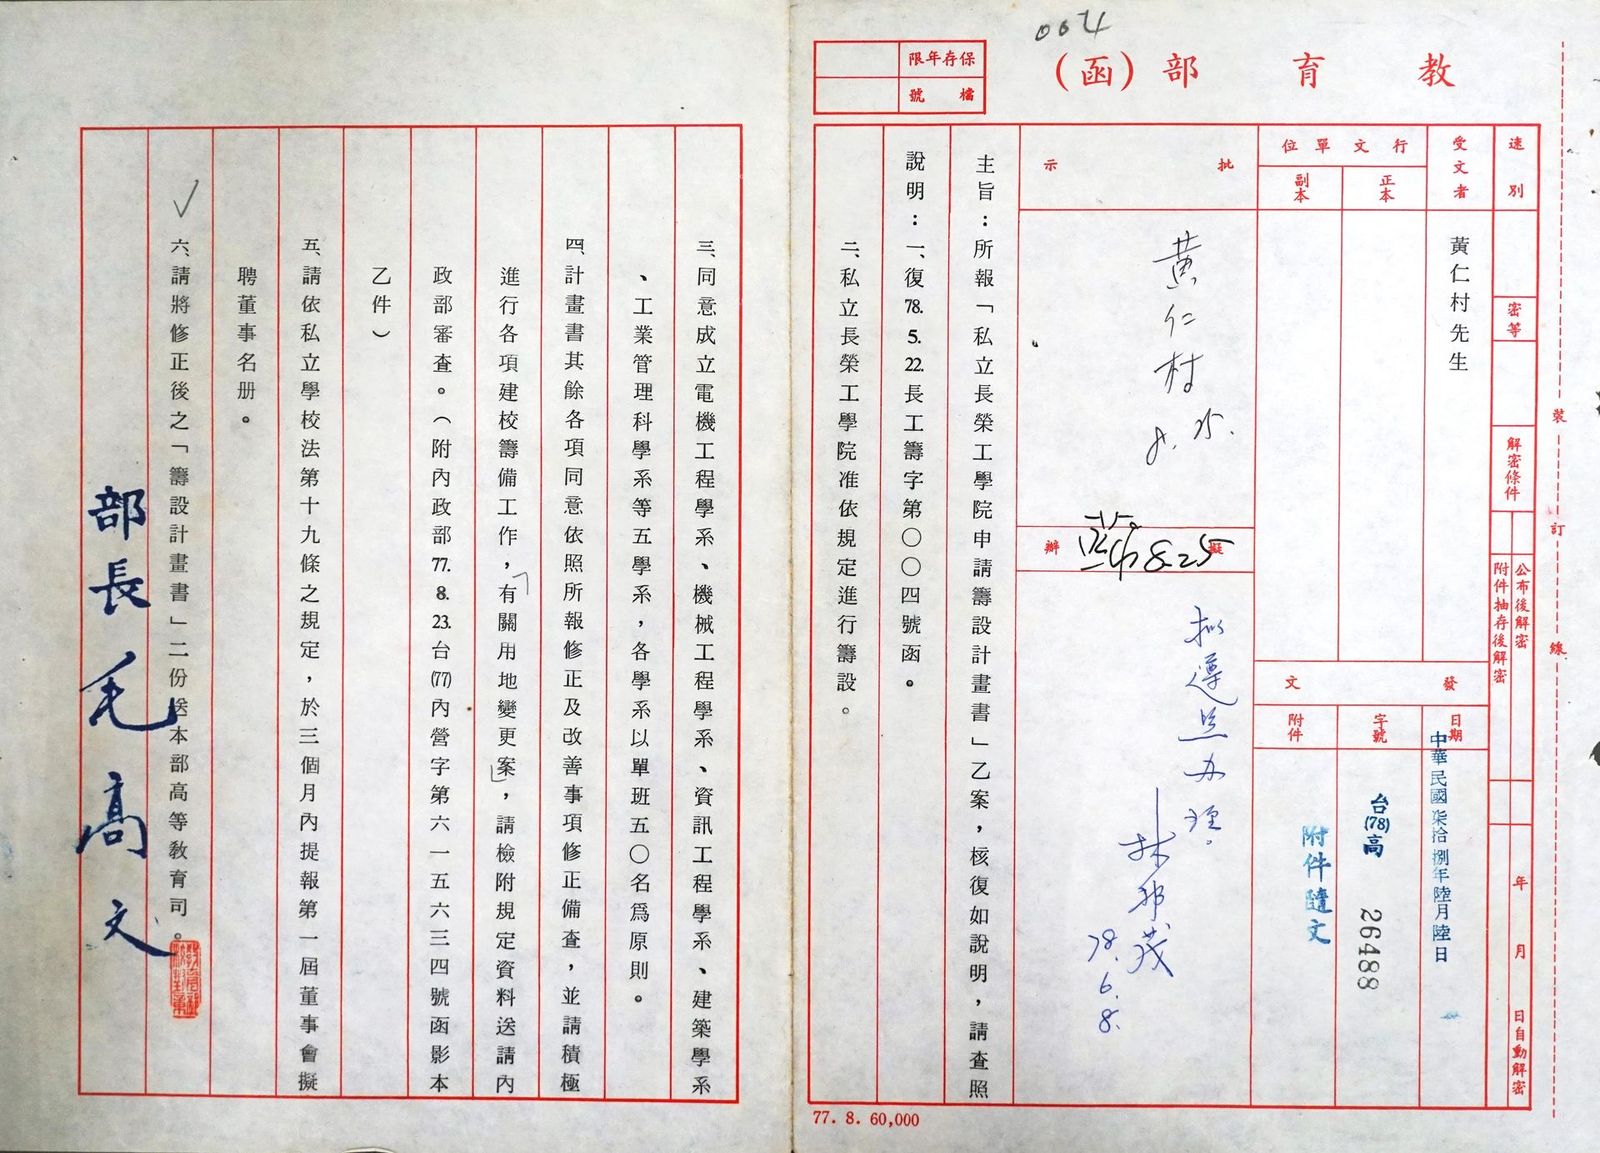 004
教育部(函)
保存年限
檔號
速別
密等
解密條件
公布後解密
附件抽存後解密
年月日自動解密
受文者
黃仁村先生
行文單位
正本
副本
發文
日期
中華民國柒拾捌年陸月陸日
字號
台(78)高 26488
附件
附件隨文
批示
黃仁村
8.25.
擬辦
8-25
拟遵照办理。
78.6.8.
主旨:所報「私立長榮工學院申請籌設計畫書」乙案,核復如說明,請查照
說明:一、復78.5.22.長工籌字第〇〇四號函。
二、私立長榮工學院准依規定進行籌設。
裝訂線
77. 8. 60,000
三、同意成立電機工程學系、機械工程學系、資訊工程學系、建築學系
、工業管理科學系等五學系,各學系以單班五〇名為原則。
四、計畫書其餘各項同意依照所報修正及改善事項修正備查,並請積極
進行各項建校籌備工作,有關用地變更案,請檢附規定資料送請內
政部審查。(附內政部77.8.23.台(77)內營字第六一五六三四號函影本
乙件)
五、請依私立學校法第十九條之規定,於三個月內提報第一屆董事會擬
聘董事名册。
六、請將修正後之「籌設計畫書」二份送本部高等教育司。
部長毛高文